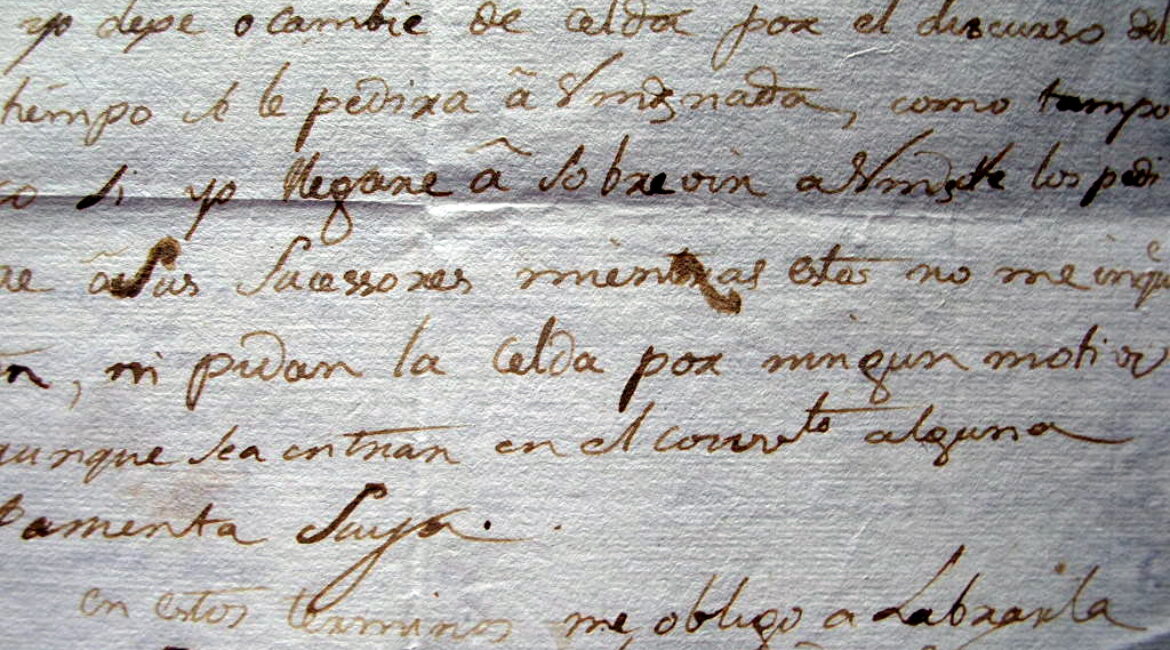 yo dexe o cambie de celda por el discurso del
tiempo se le pedira â Vmds nada, como tampo
co si yo llegare â sobrevir a Vmds te los pedi
re â sus sucessores mientras estos no me inqe
n, ni pidan la celda por ningun motivo
aunque sea entrar en el convto alguna
parmenta suya.
en estos terminos me obligo a Labrarla